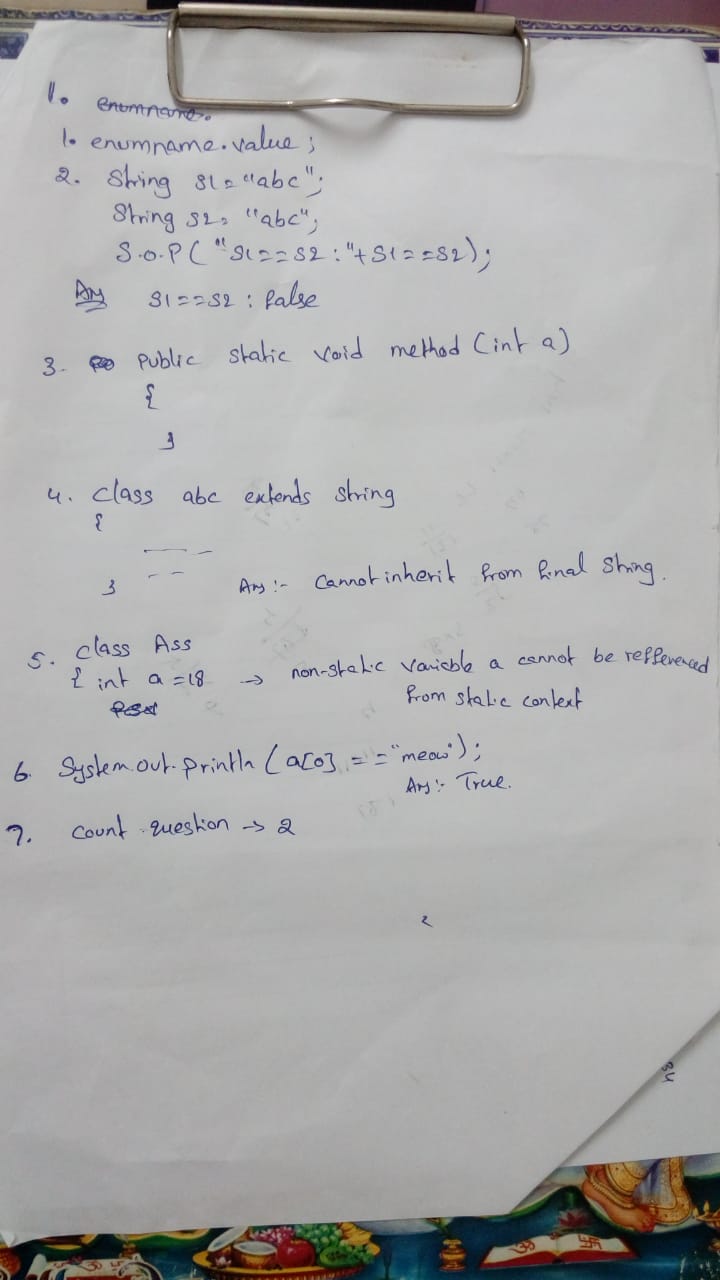 1. enumname.
1. enumname.value;
2. String s1="abc";
String s2= "abc";
S.o.P("s1==s2:"+s1==s2);
Ans s1==s2 : false
3. public static void method (int a)
{
}
4. class abc extends string
{
}
Ans :- Cannot inherit from final String.
5. class Ass
{ int a =18 → non-static variable a cannot be refferenced
from static context
6. System.out.println (a[0] == "meow");
Ans :- True.
7. Count question → 2
34